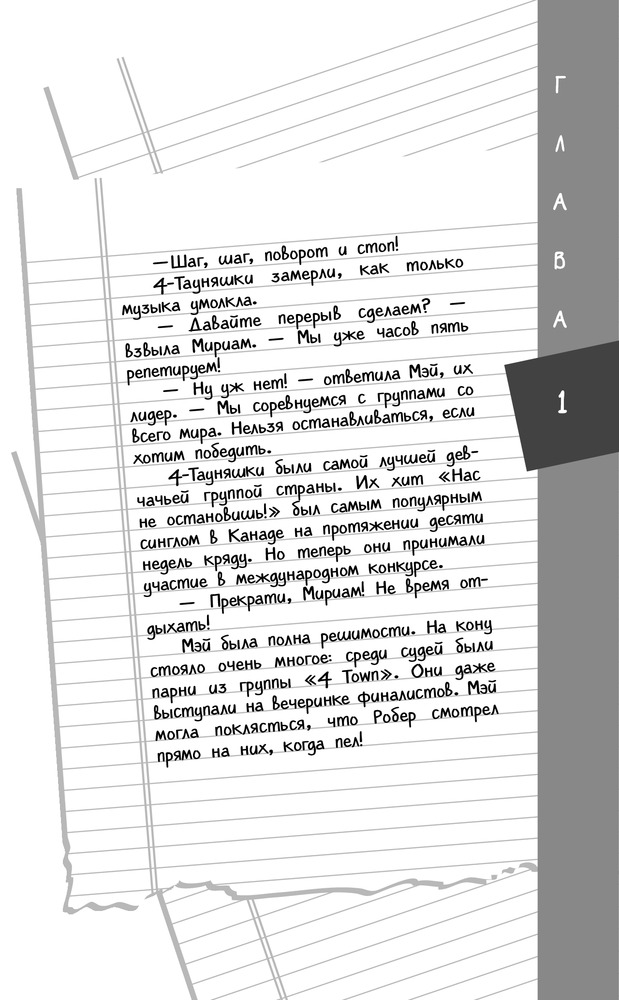 — Шаг, шаг, поворот и стоп!
4-Тауняшки замерли, как только
музыка умолкла.
— Давайте перерыв сделаем? —
взвыла Мириам. — Мы уже часов пять
репетируем!
— Ну уж нет! — ответила Мэй, их
лидер. — Мы соревнуемся с группами со
всего мира. Нельзя останавливаться, если
хотим победить.
4-Тауняшки были самой лучшей дев-
чачьей группой страны. Их хит «Нас
не остановишь!» был самым популярным
синглом в Канаде на протяжении десяти
недель кряду. Но теперь они принимали
участие в международном конкурсе.
— Прекрати, Мириам! Не время от-
дыхать!
Мэй была полна решимости. На кону
стояло очень многое: среди судей были
парни из группы «4 Town». Они даже
выступали на вечеринке финалистов. Мэй
могла поклясться, что Робер смотрел
прямо на них, когда пел!
ГЛАВА
1